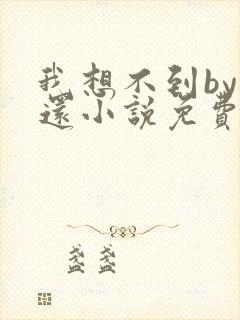 我想不到by
還小說免費
盞盞